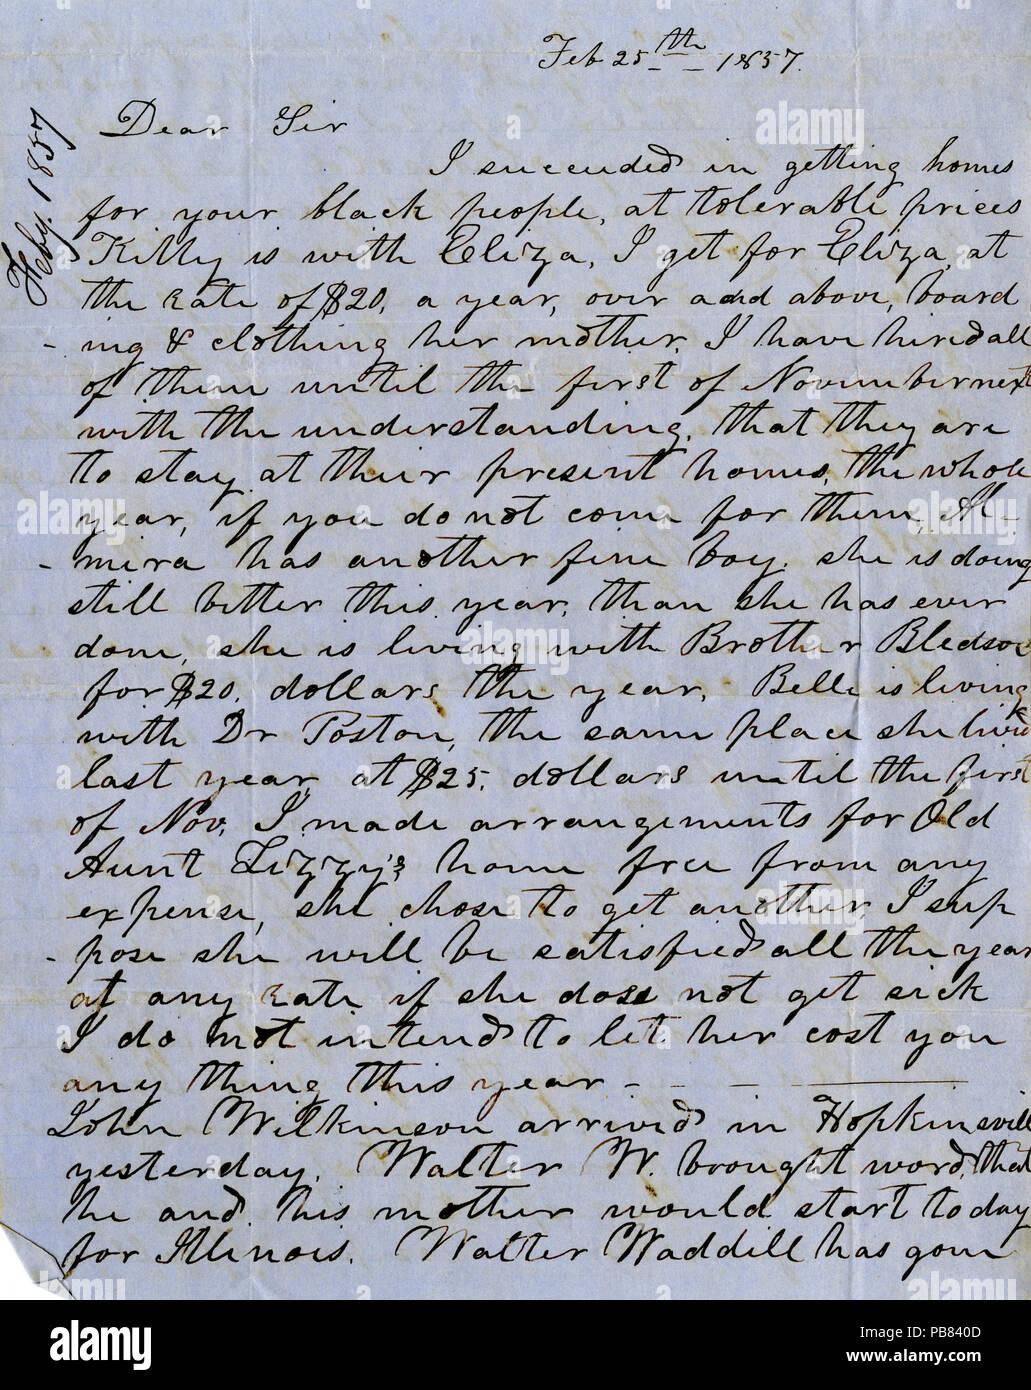 Feb 25th 1857.
Feby. 1857
Dear Sir
I succeeded in getting homes
for your black people, at tolerable prices
Kitty is with Eliza, I get for Eliza, at
the rate of $20, a year, over and above, board
-ing & clothing her mother, I have hired all
of them until the first of November next
with the understanding, that they are
to stay at their present homes, the whole
year, if you do not come for them, Al-
-mira has another fine boy. she is doing
still better this year, than she has ever
done, she is living with Brother Bledsoe
for $20. dollars the year, Belle is living
with Dr Poston, the same place she lived
last year, at $25. dollars until the first
of Nov, I made arrangements for Old
Aunt Lizzy's home free from any
expense, she chose to get another, I sup
-pose she will be satisfied all the year
at any rate if she dose not get sick
I do not intend to let her cost you
any thing this year - - -
John Wilkinson arrived in Hopkinsvill
yesterday. Walter W. brought word, that
he and his mother would start today
for Illinois. Walter Waddill has gone
alamy
alamy stock photo
PB840D
www.alamy.com